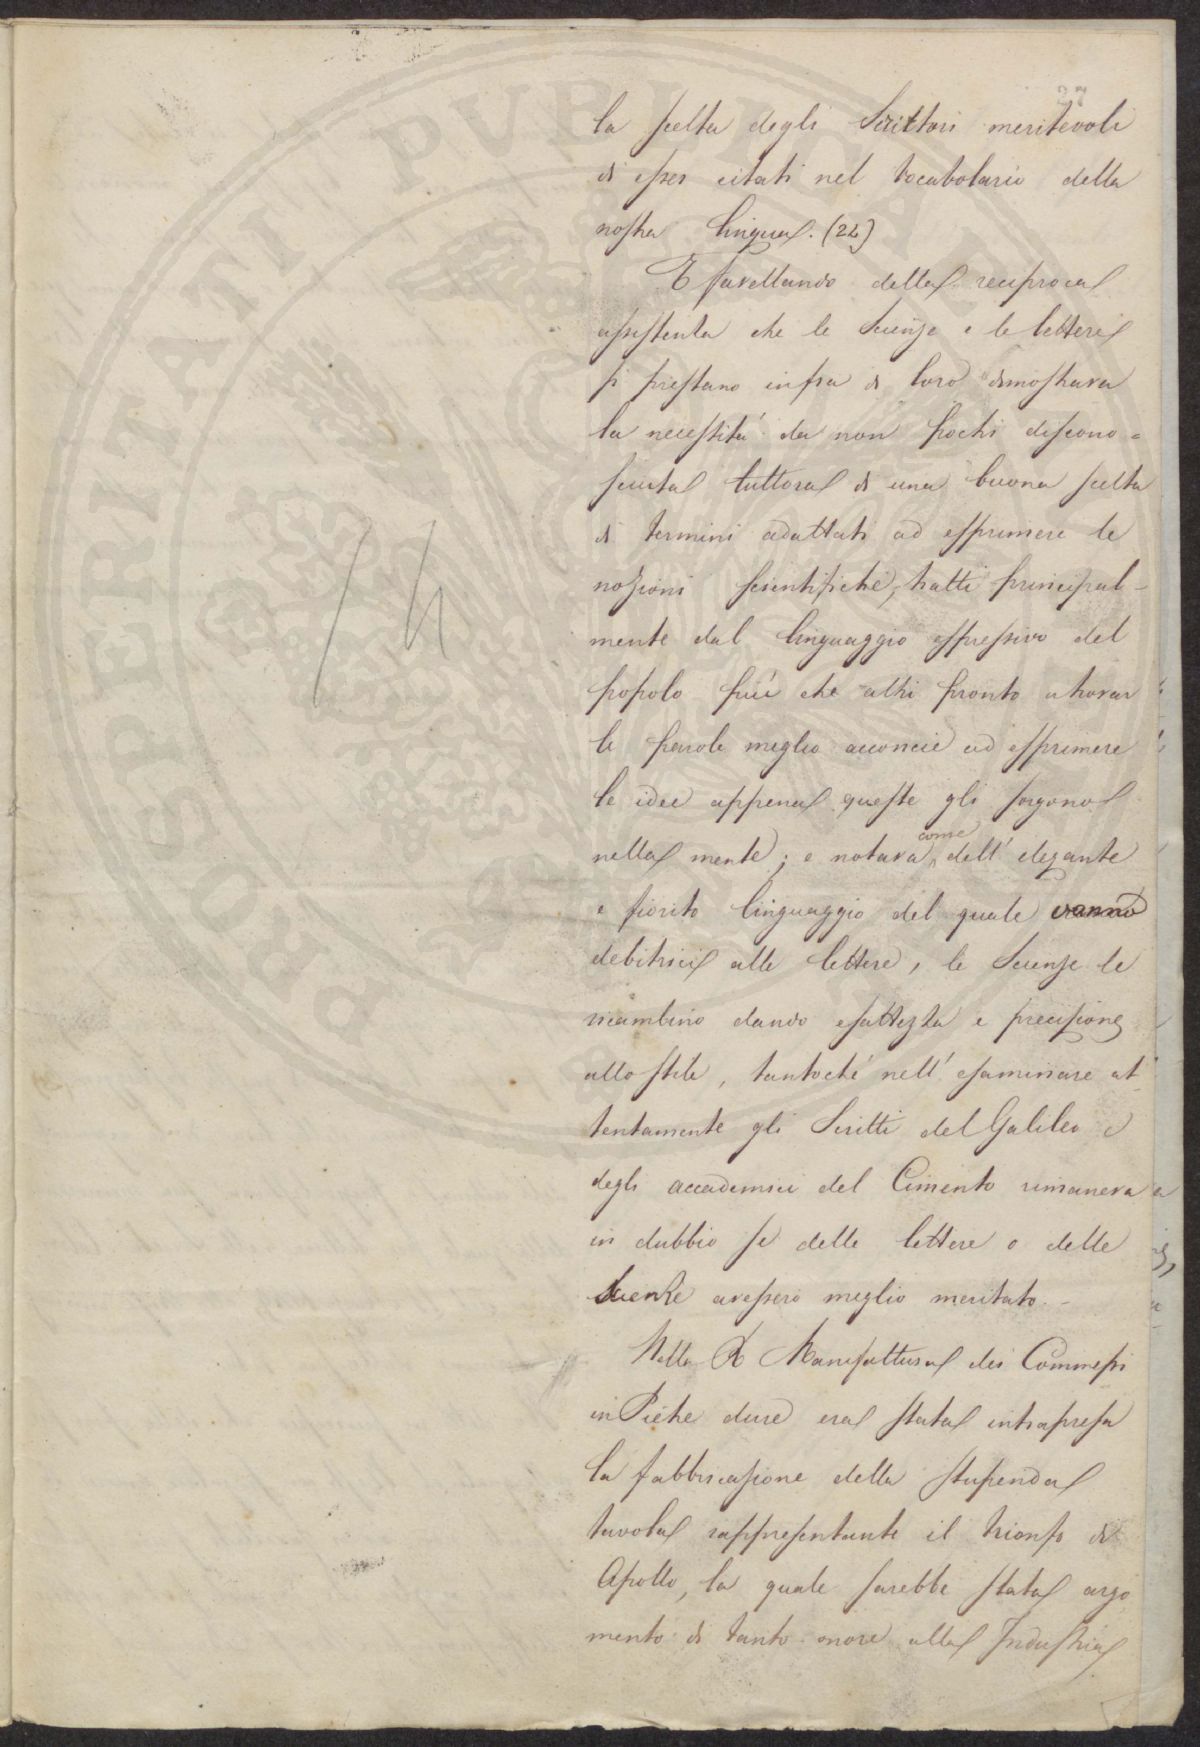 27
la scelta degli Scrittori meritevoli
di esser citati nel Vocabolario della
nostra lingua. (22)
E favellando della reciproca
assistenza che le Scienze e le lettere
si prestano infra di loro dimostrava
la necessità da non pochi discono=
sciuta tuttora di una buona scelta
di termini adattati ad esprimere le
nozioni scientifiche, tratti principal-
mente dal linguaggio espressivo del
popolo più che altri pronto a trovar
le parole meglio acconcie ad esprimere
le idee appena queste gli sorgono
nella mente; e notava come dell' elegante
e fiorito linguaggio del quale vanno
debitrici alle lettere, le Scienze le
ricambino dando esattezza e precisione
allo stile, tantoché nell' esaminare at-
tentamente gli Scritti del Galileo e
degli accademici del Cimento rimaneva
in dubbio se delle lettere o delle
Scienze avessero meglio meritato. -
Nella R Manifattura dei Commessi
in Pietre dure era stata intrapresa
la fabbricazione della stupenda
tavola rappresentante il trionfo di
Apollo, la quale sarebbe stata argo
mento di tanto onore alla Industria
14
PROSPERITATI PUBLICAE